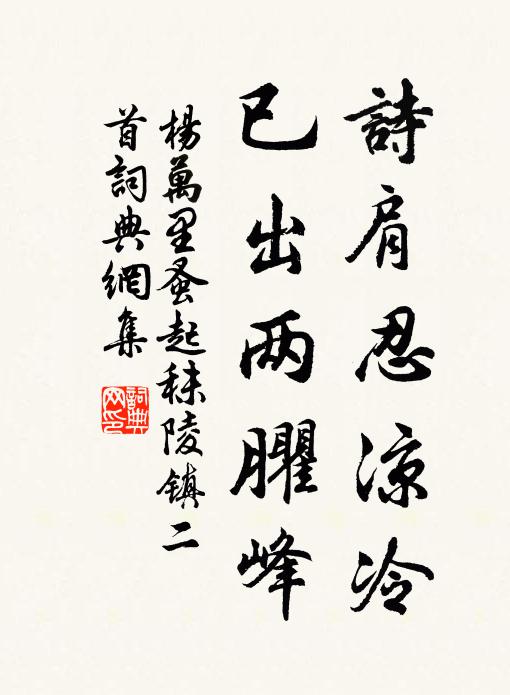 詩肩忍涼冷
已出两臞峰
楊萬里蚤起秣陵镇二
首詞典網集
詞典
网印